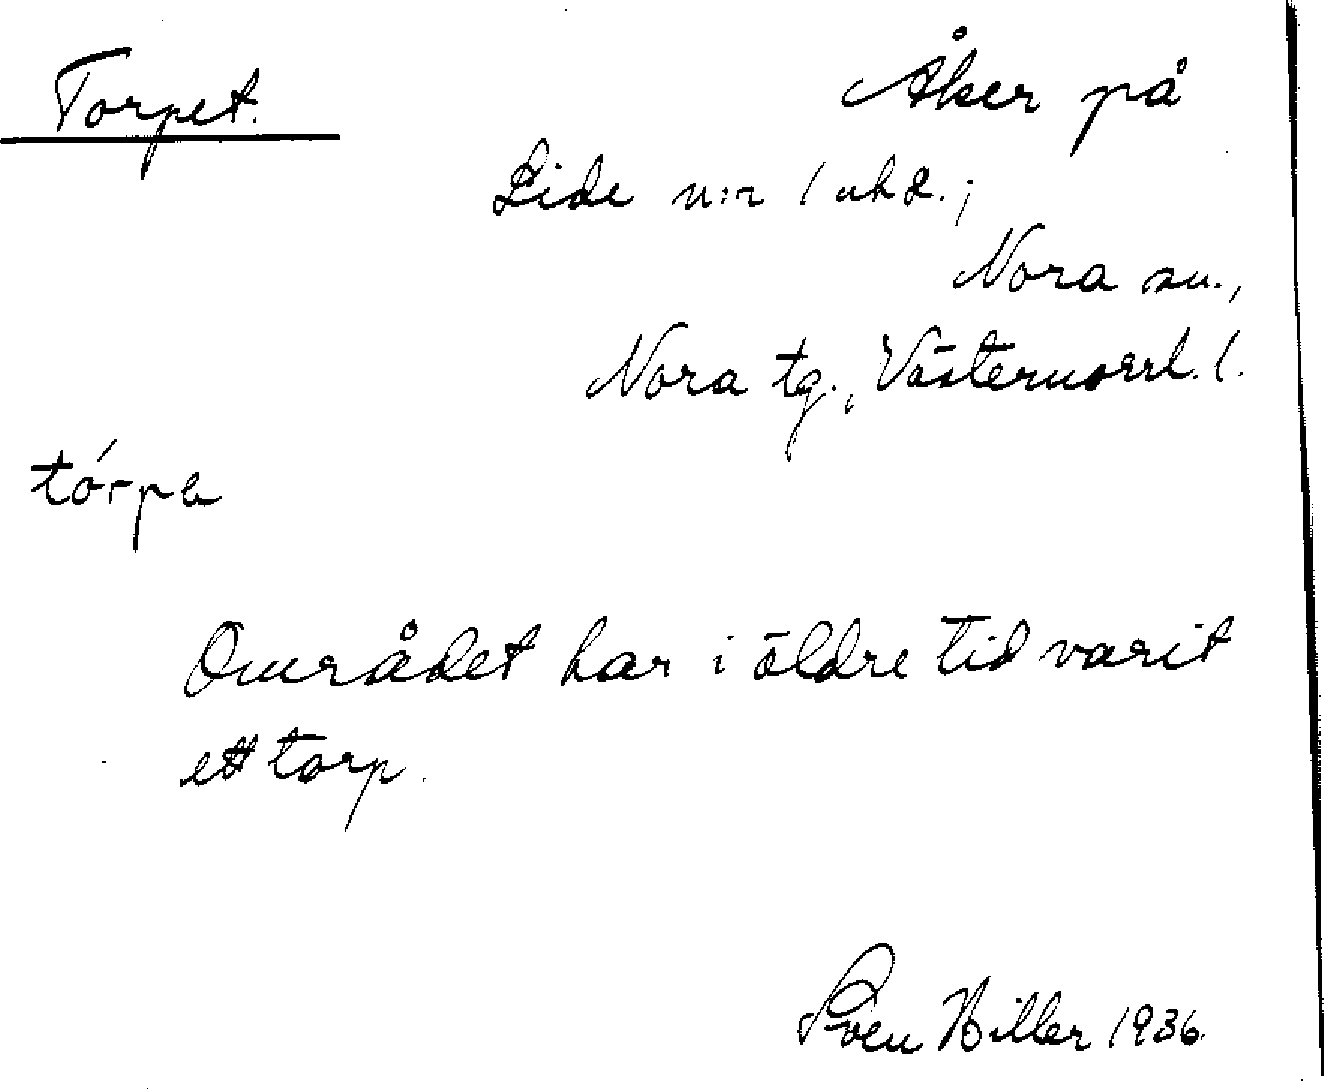 Torpet. Åker på
Lide n:r 1 och 2.;
Nora sn.,
Nora tg., Västernorrl. l.
tórpa
Området har i äldre tid varit
ett torp.
Sven Hiller 1936.